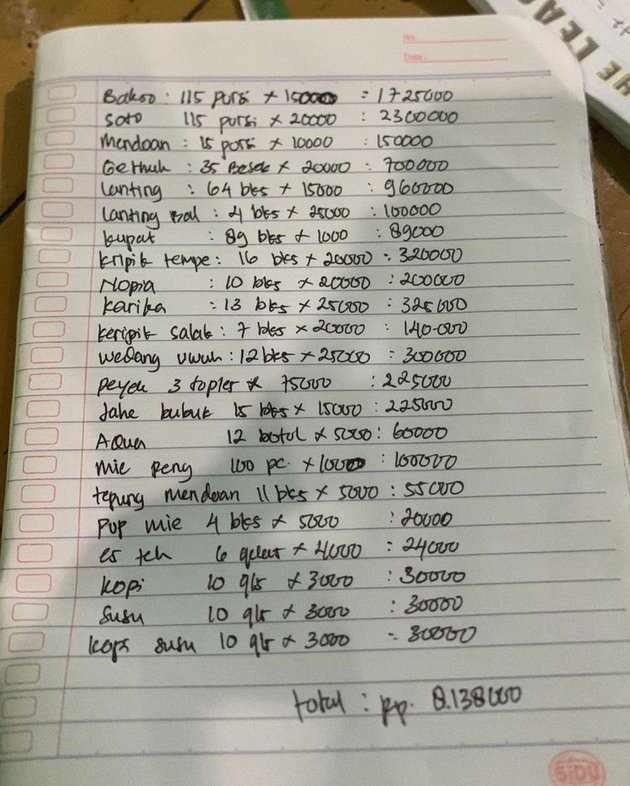 No.
Date:
THE LEA
Bakso : 115 porsi x 15000 = 1725000
Soto 115 porsi x 20000 : 2300000
Mendoan : 15 porsi x 10000 : 150000
Gethuk : 35 Besek x 20000 : 700000
Lanting : 64 bks x 15000 : 960000
Lanting Bal : 4 bks x 25000 : 100000
kupat : 89 bks x 1000 : 89000
kripik tempe : 16 bks x 20000 = 320000
Nopia : 10 bks x 20000 : 200000
karika : 13 bks x 25000 : 325000
keripik salak : 7 bks x 20000 : 140.000
wedang uwuh : 12 bks x 25000 = 300000
peyek 3 topler x 75000 : 225000
Jahe bubuk 15 bks x 15000 : 225000
AQua 12 botol x 5000 : 60000
mie peng 100 pc. x 1000 : 100000
tepung mendoan 11 bks x 5000 : 55000
Pop mie 4 bks x 5000 : 20000
es teh 6 gelas x 4000 = 24000
kopi 10 gls x 3000 : 30000
Susu 10 gls x 3000 : 30000
kopi susu 10 gls x 3000 = 30000
total : Rp. 8.138000
SiDU